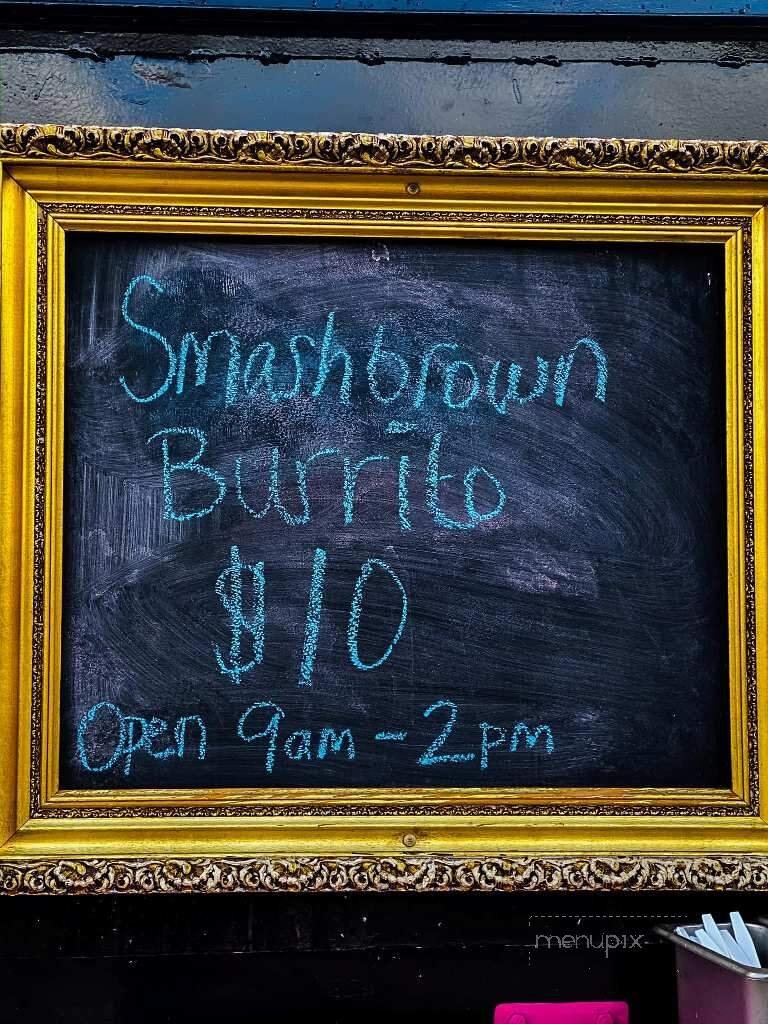 Smashbrown
Burrito
$10
Open 9am - 2pm
menupix